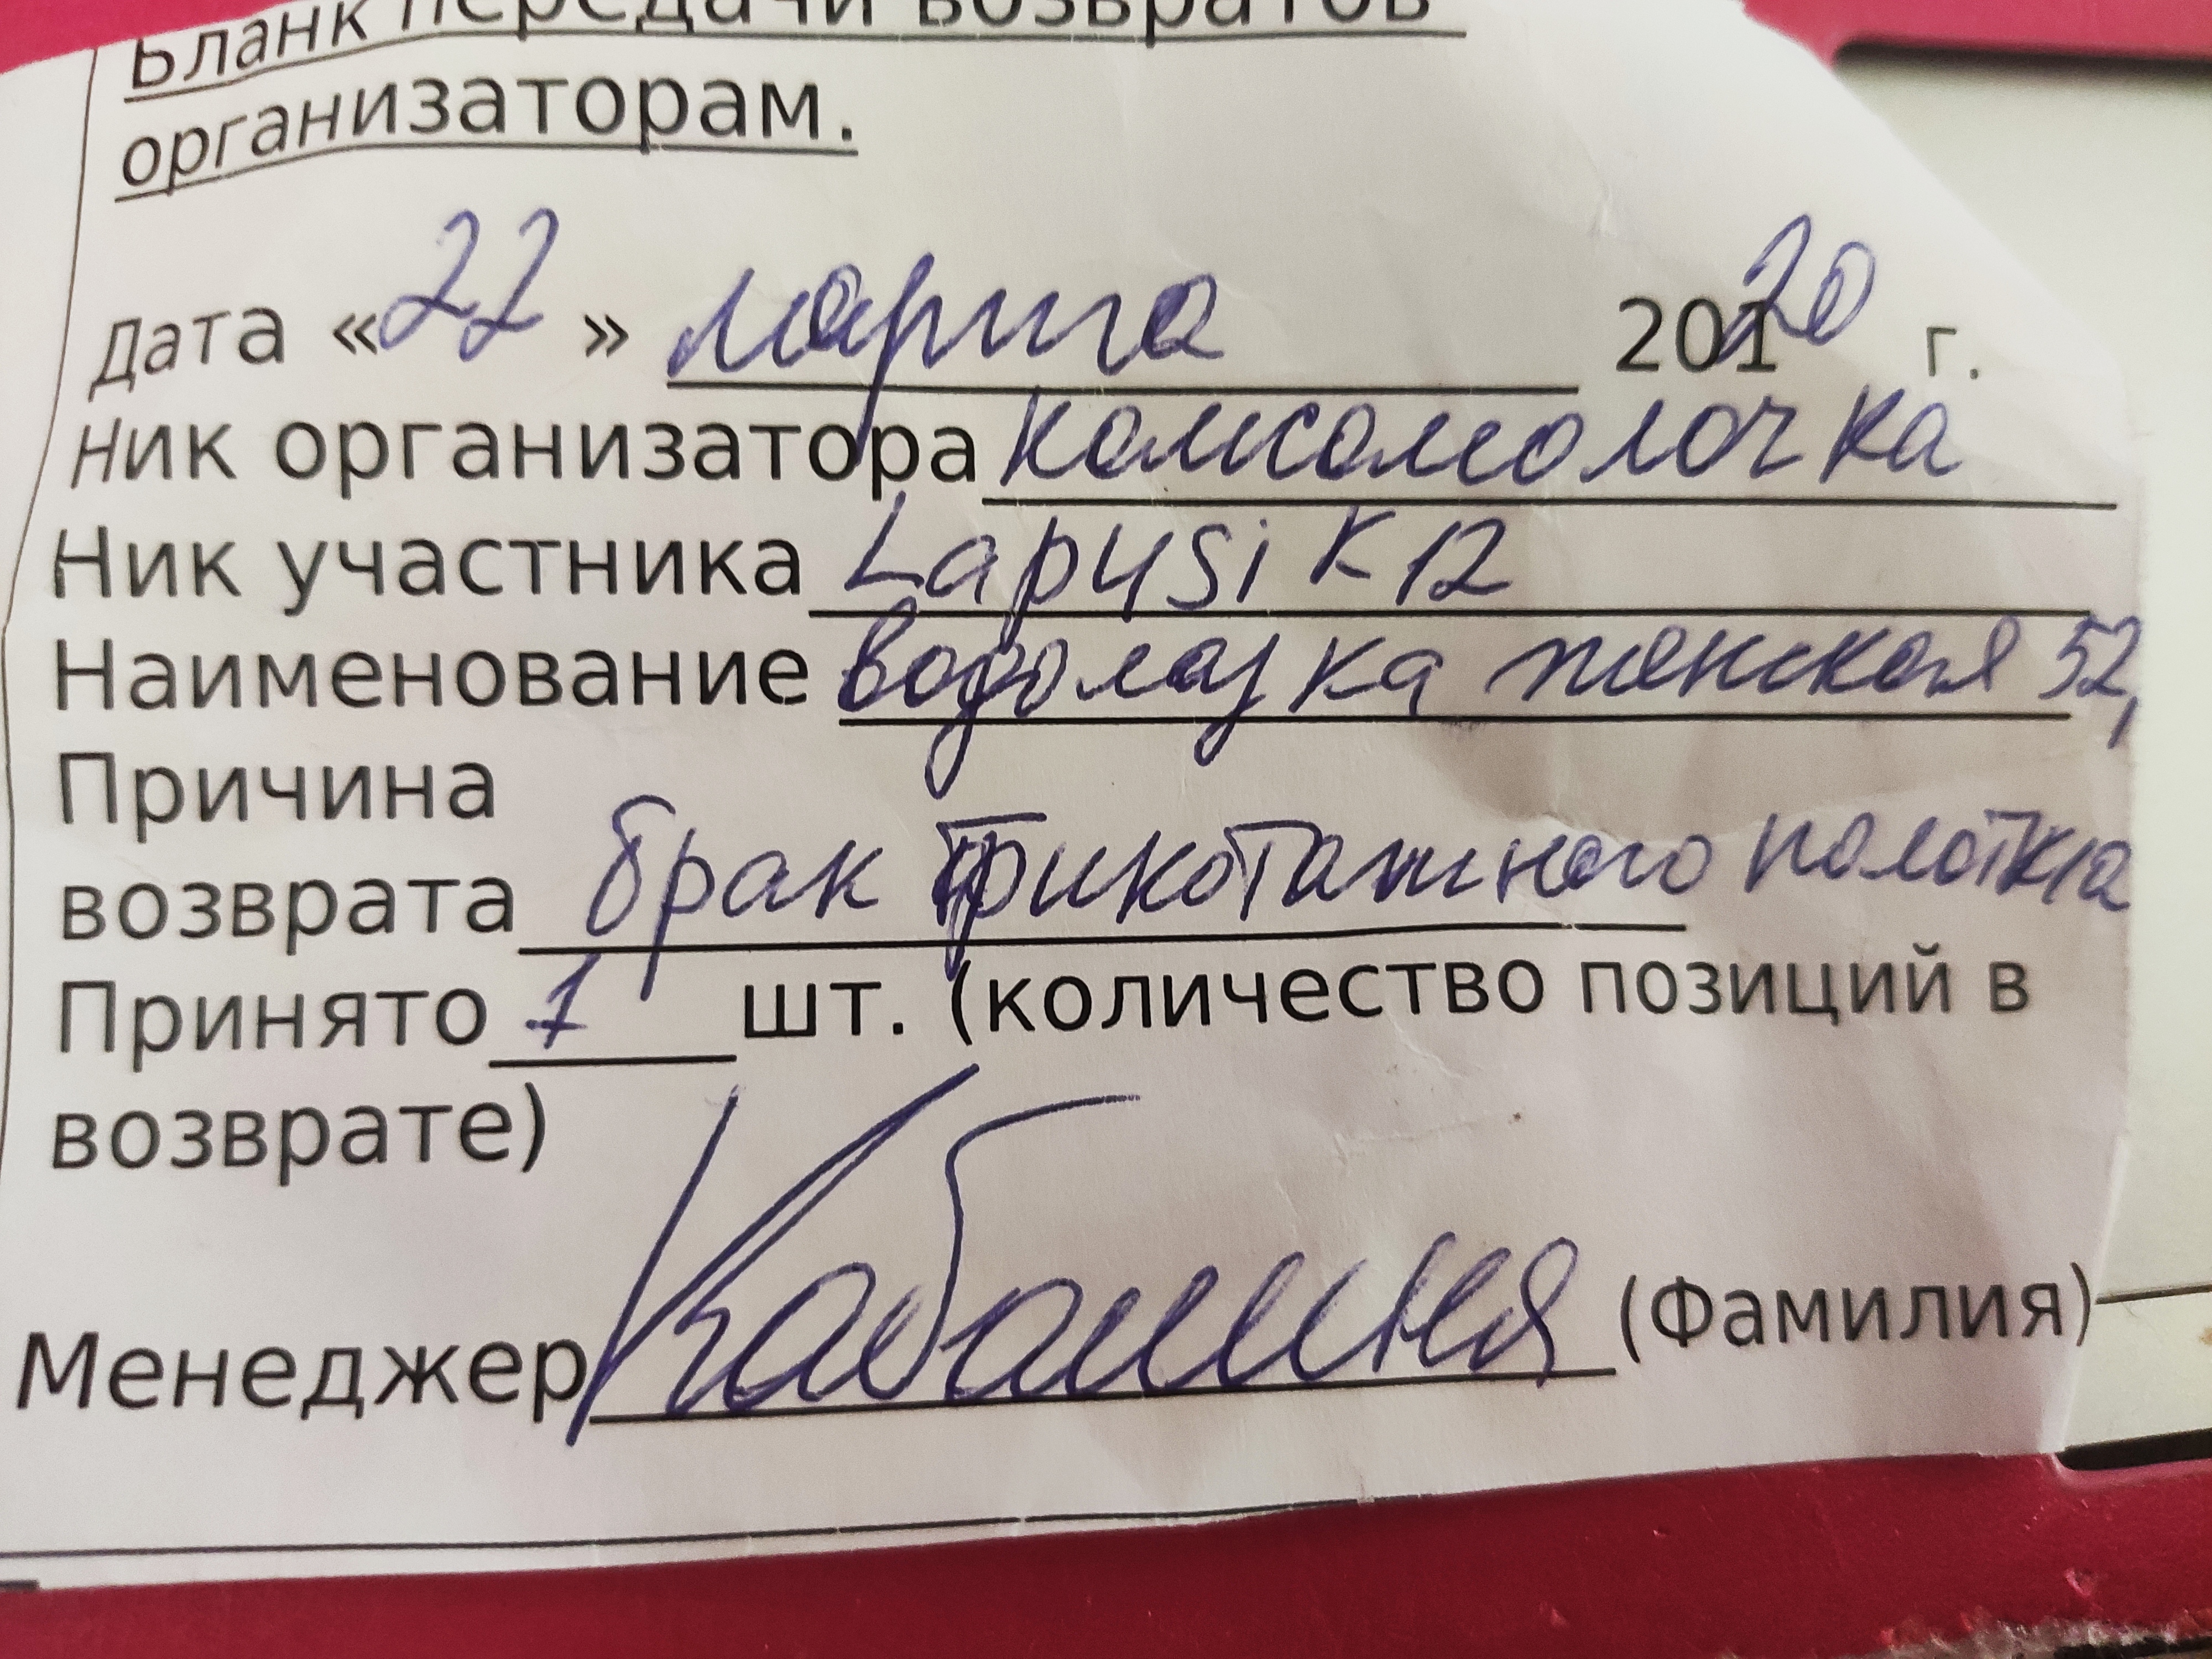 Бланк передачи возвратов
организаторам.
Дата «22» марта 2020 г.
Ник организатора комсомолочка
Ник участника Lapusik12
Наименование водолазка женская 52,
Причина
возврата брак трикотажного полотна
Принято 1 шт. (количество позиций в
возврате)
Менеджер (Фамилия)